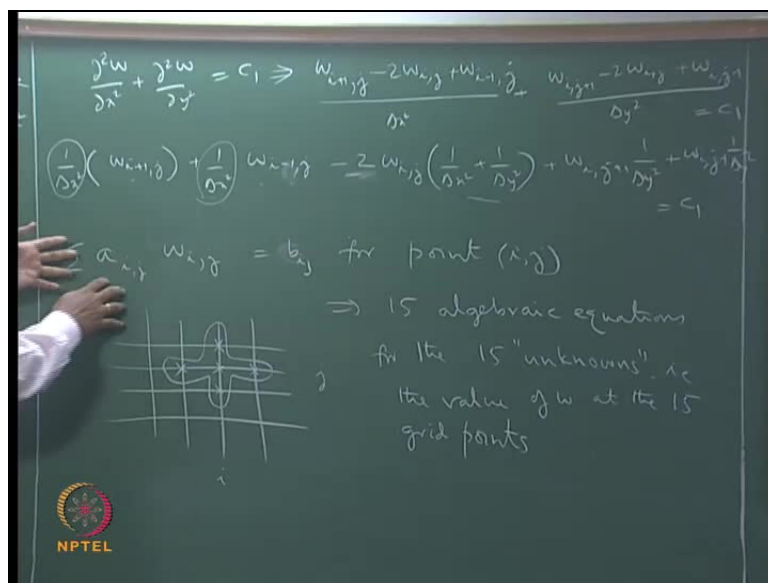 ∂²w/∂x² + ∂²w/∂y² = c₁ ⇒ (w_{i+1,j} − 2w_{i,j} + w_{i−1,j})/Δx² + (w_{i,j+1} − 2w_{i,j} + w_{i,j−1})/Δy² = c₁
1/Δx² (w_{i+1,j}) + 1/Δx² w_{i−1,j} − 2 w_{i,j} (1/Δx² + 1/Δy²) + w_{i,j+1} 1/Δy² + w_{i,j−1} 1/Δy²
= c₁
a_{i,j} w_{i,j} = b_{ij} for point (i,j)
⇒ 15 algebraic equations
for the 15 "unknowns" i.e
the value of w at the 15
grid points
j
i
NPTEL